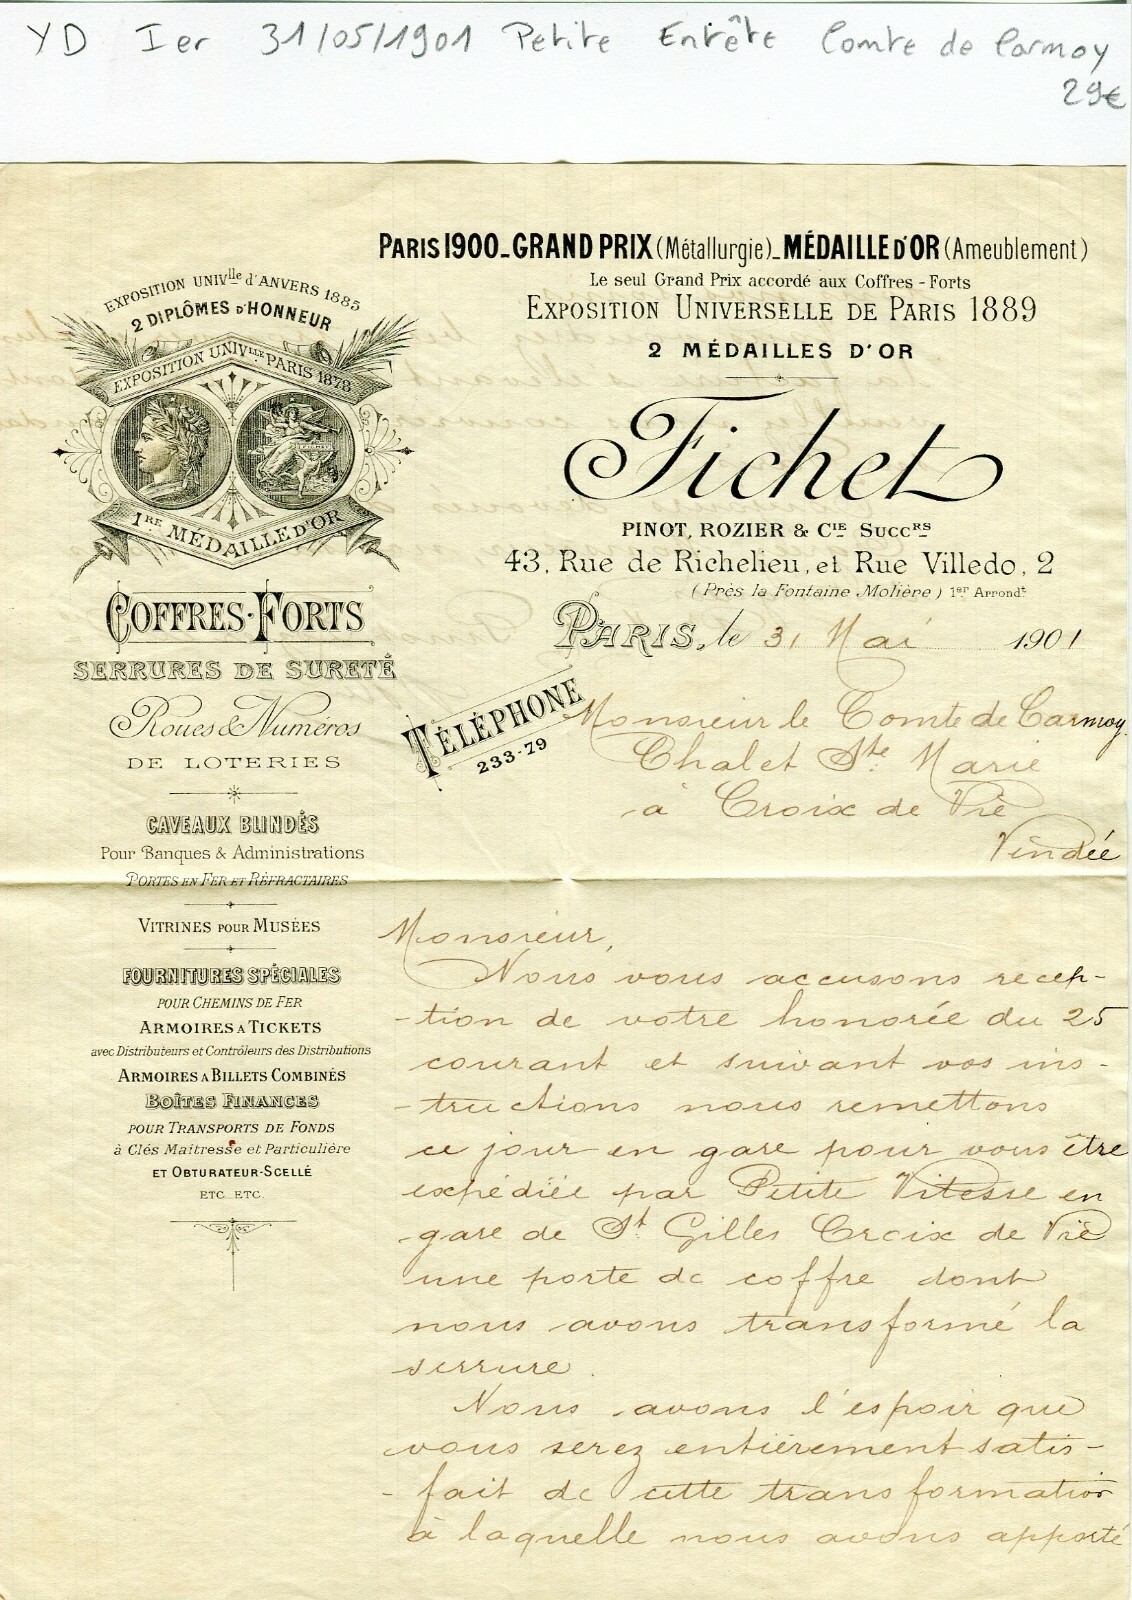 YD Ier 31/05/1901 Petite Entête Comte de Carmoy
29€
PARIS 1900_GRAND PRIX (Métallurgie)_MÉDAILLE D'OR (Ameublement)
Le seul Grand Prix accordé aux Coffres-Forts
EXPOSITION UNIVERSELLE DE PARIS 1889
2 MÉDAILLES D'OR
EXPOSITION UNIVlle D'ANVERS 1885
2 DIPLÔMES D'HONNEUR
EXPOSITION UNIVlle PARIS 1878
1RE MÉDAILLE D'OR
Fichet
PINOT, ROZIER & CIE SUCCRS
43, Rue de Richelieu, et Rue Villedo, 2
(Près la Fontaine Molière) 1er Arrondt
PARIS, le 31 Mai 1901
TÉLÉPHONE
233-79
COFFRES-FORTS
SERRURES DE SURETÉ
Roues & Numéros
DE LOTERIES
CAVEAUX BLINDÉS
Pour Banques & Administrations
PORTES EN FER ET RÉFRACTAIRES
VITRINES POUR MUSÉES
FOURNITURES SPÉCIALES
POUR CHEMINS DE FER
ARMOIRES A TICKETS
avec Distributeurs et Contrôleurs des Distributions
ARMOIRES A BILLETS COMBINÉS
BOÎTES FINANCES
POUR TRANSPORTS DE FONDS
à Clés Maîtresse et Particulière
ET OBTURATEUR-SCELLÉ
ETC. ETC.
Monsieur le Comte de Carmoy
Chalet Ste Marie
à Croix de Vie
Vendée
Monsieur,
Nous vous accusons récep-
-tion de votre honorée du 25
courant et suivant vos ins-
-tructions nous remettons
ce jour en gare pour vous être
expédiée par Petite Vitesse en
gare de St Gilles Croix de Vie
une porte de coffre dont
nous avons transformé la
serrure.
Nous avons l'espoir que
vous serez entièrement satis-
-fait de cette transformation
à laquelle nous avons apporté